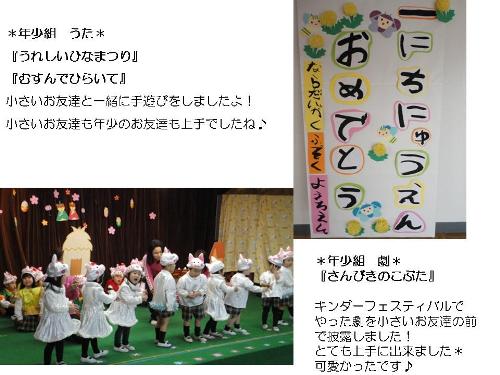 ＊年少組　うた＊
『うれしいひなまつり』
『むすんでひらいて』
小さいお友達と一緒に手遊びをしましたよ！
小さいお友達も年少のお友達も上手でしたね♪
一にちにゅうえん
おめでとう
ならだいがくふぞくようちえん
＊年少組　劇＊
『さんびきのこぶた』
キンダーフェスティバルで
やった劇を小さいお友達の前
で披露しました！
とても上手に出来ました＊
可愛かったです♪